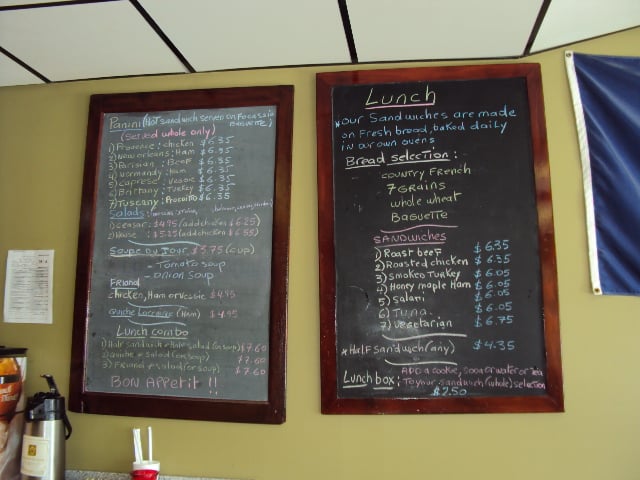 Panini (Hot sandwich served on Focaccia
Baguette)
(Served whole only)
1) Provence: chicken $6.35
2) New orleans: Ham $6.35
3) Parisian: Beef $6.35
4) Normandy: Ham $6.35
5) Caprese: Veggie $6.35
6) Brittany: Turkey $6.35
7) Tuscany: Prosciutto $6.35
Salads:
1) Ceasar: $4.95 (add chicken $6.25)
2) House: $5.25 (add chicken $6.55)
Soupe Du Jour $3.75 (cup)
- Tomato soup
- Onion Soup
Friand
chicken, Ham or Veggie $4.95
Quiche Lorraine (Ham) $4.95
Lunch combo
1) Half Sandwich & Half salad (or soup) $7.60
2) Quiche & Salad (or soup) $7.60
3) Friand & salad (or soup) $7.60
BON APPetit !!
Lunch
*Our Sandwiches are made
on Fresh bread, baked daily
in our own ovens
Bread selection:
country French
7 GRAINS
whole wheat
BAGUETTE
SANDWICHES
1) Roast beef $6.35
2) Roasted chicken $6.35
3) Smoked Turkey $6.05
4) Honey maple Ham $6.05
5) Salami $6.05
6) Tuna $6.05
7) Vegetarian $6.75
*Half Sandwich (any) $4.35
Lunch box: ADD a cookie, soda or water or Tea
To your sandwich (whole) selection
$2.50